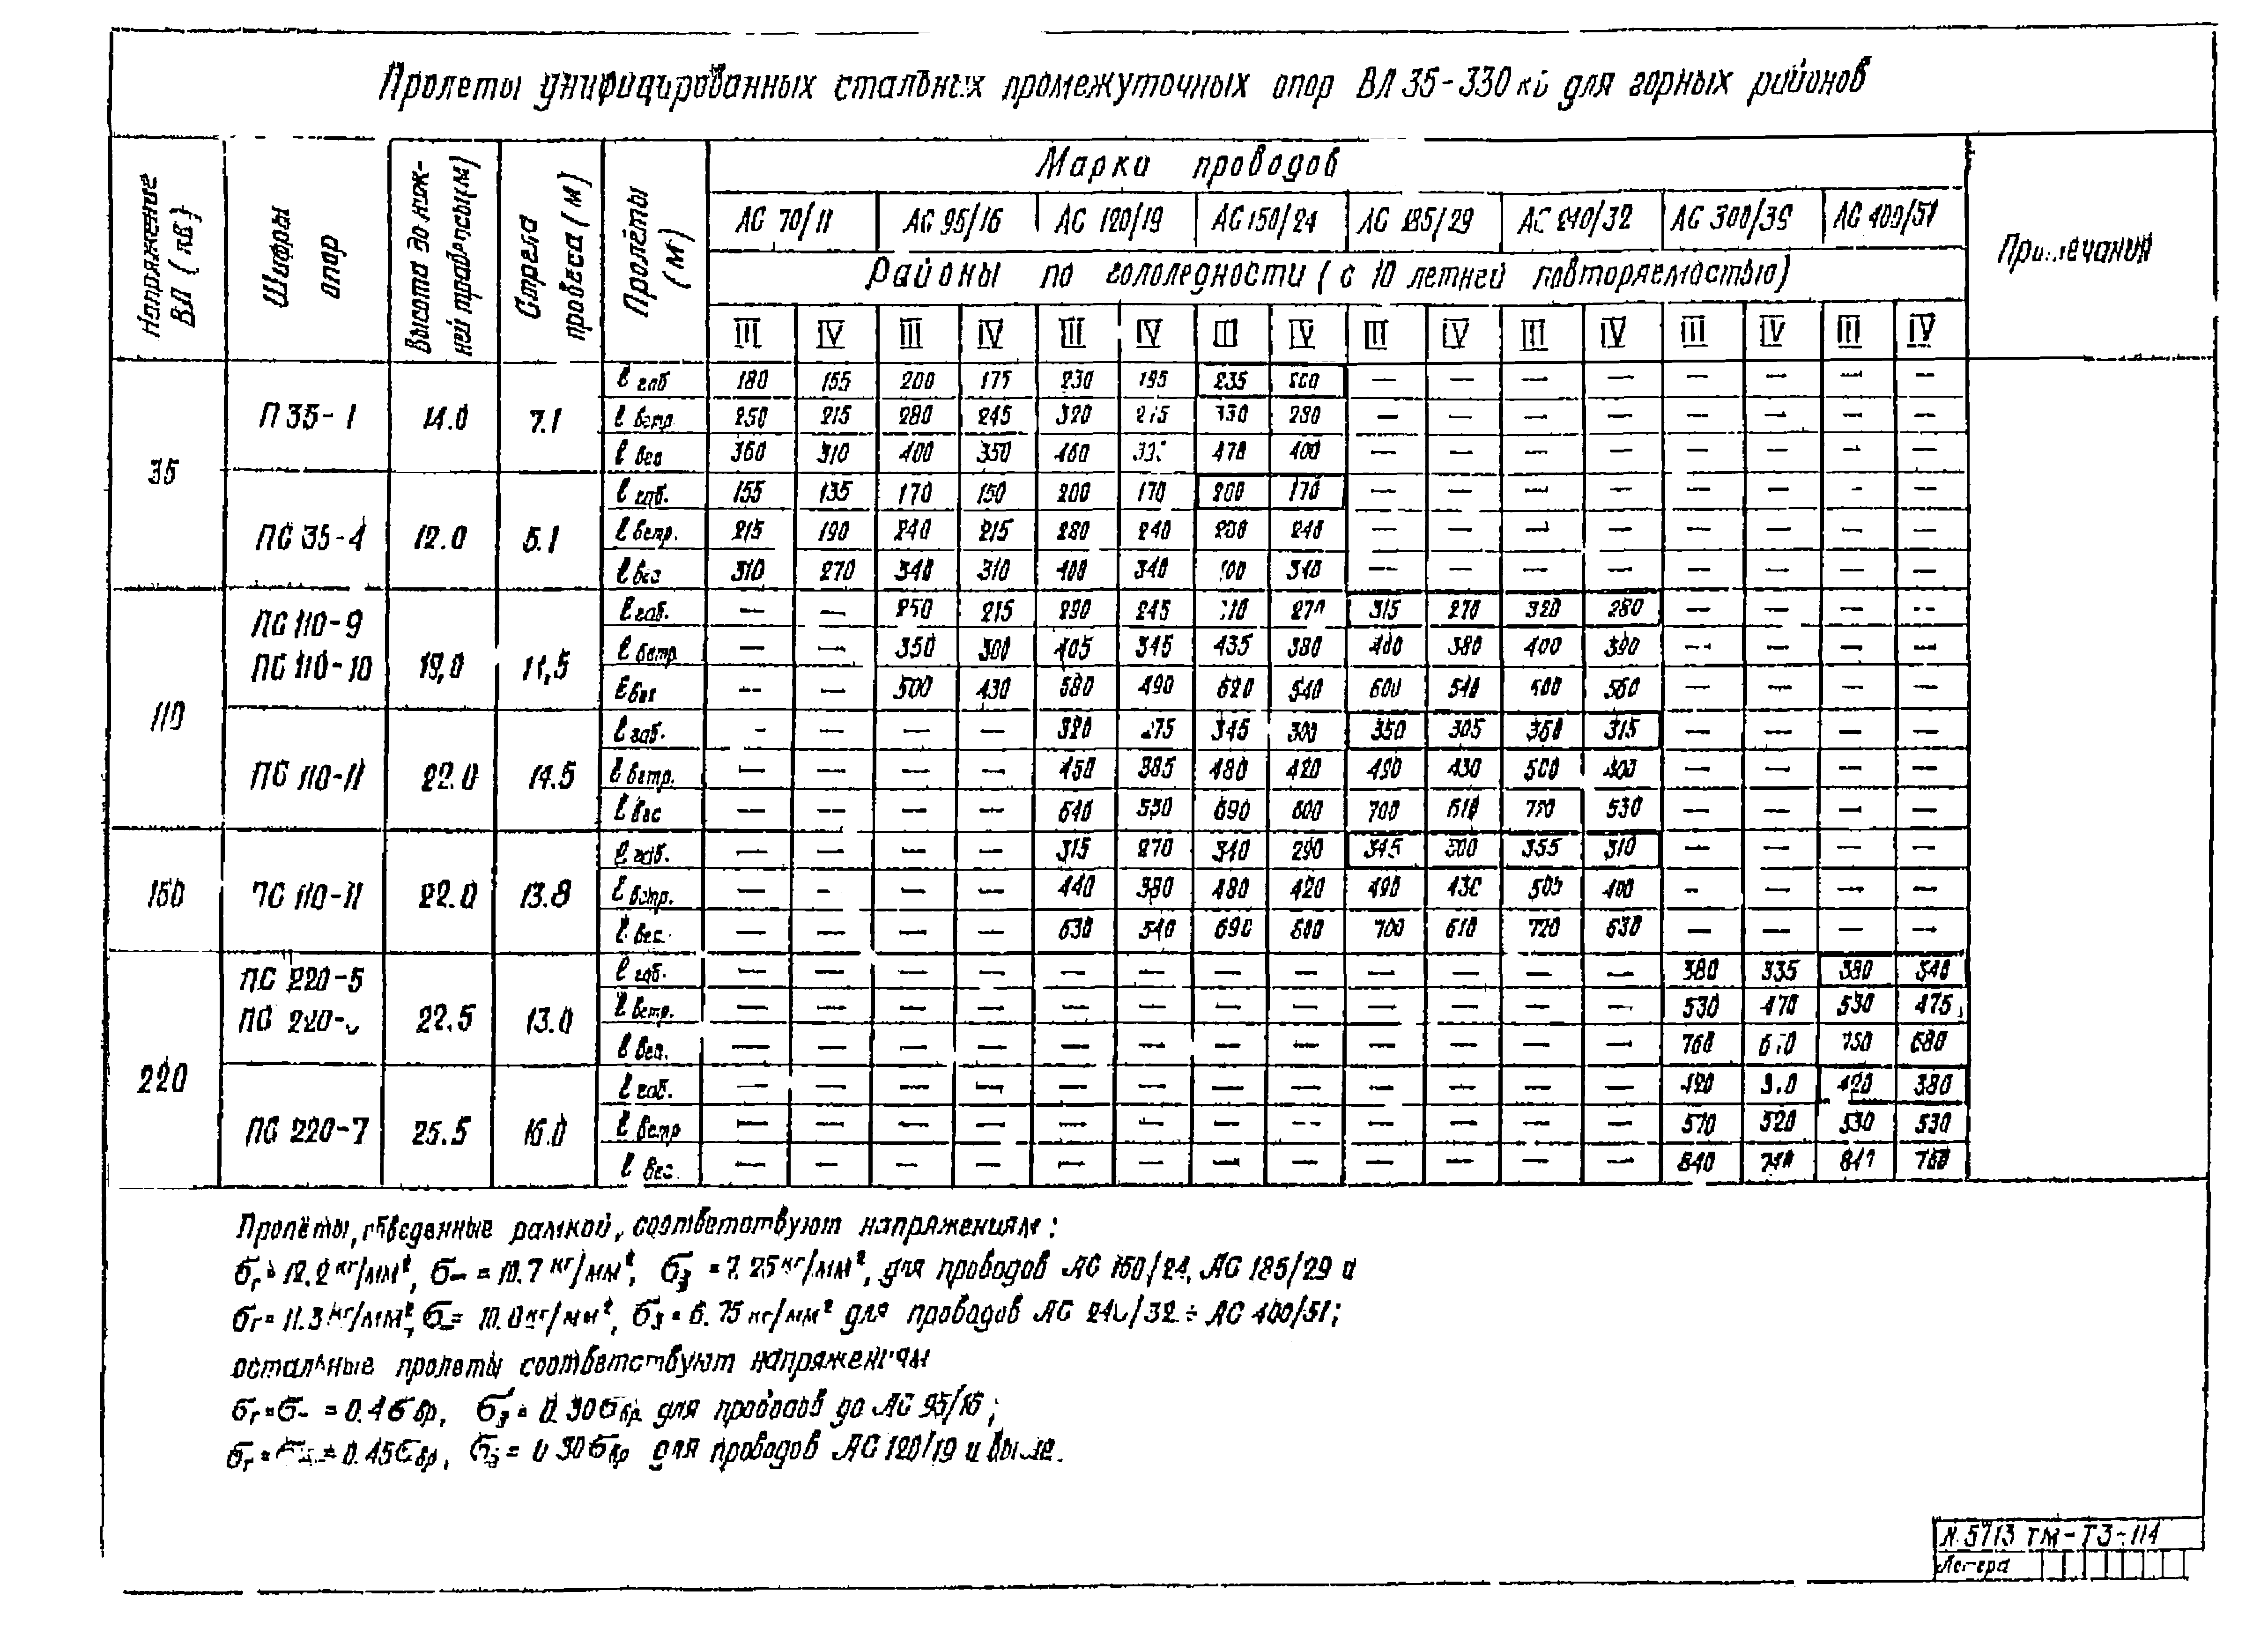 Пролеты унифицированных стальных промежуточных опор ВЛ 35-330 кв для горных районов
Напряжение ВЛ (кВ)
Шифры опор
Высота до нижней траверсы (м)
Стрела провеса (м)
Пролёты (м)
Марки проводов
Примечания
АС 70/11 АС 95/16 АС 120/19 АС 150/24 АС 185/29 АС 240/32 АС 300/39 АС 400/51
Районы по гололедности (с 10 летней повторяемостью)
III IV III IV III IV III IV III IV III IV III IV III IV
35
П 35-1 14.0 7.1
ℓ габ 180 155 200 175 230 195 235 200 — — — — — — — —
ℓ ветр. 250 215 280 245 320 275 330 280 — — — — — — — —
ℓ вес 360 310 400 350 460 470 400 — — — — — — — —
ПС 35-4 12.0 5.1
ℓ габ. 155 135 170 150 200 170 200 170 — — — — — — — —
ℓ ветр. 215 190 240 215 280 240 280 240 — — — — — — — —
ℓ вес 310 270 340 310 400 340 400 340 — — — — — — — —
110
ПС 110-9
ПС 110-10 19,0 11,5
ℓ габ. — — 250 215 290 245 310 270 315 270 320 280 — — — —
ℓ ветр. — — 350 300 405 345 435 380 380 400 390 — — — —
ℓ вес — — 500 430 580 490 620 540 600 540 560 — — — —
ПС 110-11 22.0 14.5
ℓ габ. — — — — 320 275 345 300 350 305 360 315 — — — —
ℓ ветр. — — — — 450 385 480 420 490 430 500 — — — —
ℓ вес — — — — 640 550 690 600 700 610 530 — — — —
150
ПС 110-11 22.0 13.8
ℓ габ. — — — — 315 270 340 290 345 300 355 310 — — — —
ℓ ветр. — — — — 440 380 480 420 490 430 505 400 — — — —
ℓ вес. — — — — 630 540 690 600 700 610 720 630 — — — —
220
ПС 220-5
ПС 22.5 13.0
ℓ габ. — — — — — — — — — — — — 380 335 380 340
ℓ ветр. — — — — — — — — — — — — 530 470 530 475
ℓ вес. — — — — — — — — — — — — 760 670 750 680
ПС 220-7 25.5 16.0
ℓ габ. — — — — — — — — — — — — 420 420 380
ℓ ветр — — — — — — — — — — — — 570 520 530 530
ℓ вес. — — — — — — — — — — — — 840 760
Пролёты, обведенные рамкой, соответствуют напряжениям:
σг = 12.2 кг/мм², σ– = 10.7 кг/мм², σэ = 7.25 кг/мм², для проводов АС 150/24, АС 185/29 и
σг = 11.3 кг/мм², σ– = 10.0 кг/мм², σэ = 6.75 кг/мм² для проводов АС 240/32 ÷ АС 400/51;
остальные пролеты соответствуют напряжениям
σг = σ– = 0.4 σвр, σэ = 0.30 σвр для проводов до АС 95/16;
σг = σ– = 0.45 σвр, σэ = 0.30 σвр для проводов АС 120/19 и выше.
N 5713 ТМ-Т3-114
Литера